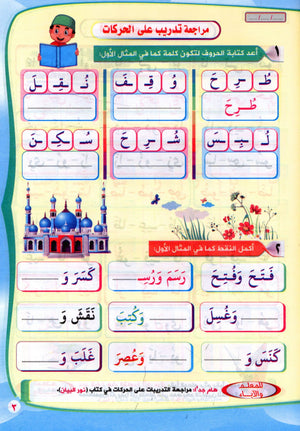 مراجعة تدريب على الحركات
١ أعد كتابة الحروف لتكون كلمة كما في المثال الأول:
طُ رِ حَ وُ قِ فَ نُ قِ لَ
طُرِحَ
لُ بِ سَ شُ رِ حَ سُ كِ نَ
٢ أكمل النقط كما في المثال الأول:
فَتَحَ وَفُتِحَ رَسَمَ وَرُسِـ كَسَرَ وَ
وَغُسِلَ وَكُتِبَ نَقَشَ وَ
كَنَسَ وَ وَعُصِرَ غَلَبَ وَ
للمعلم والآباء
هام جداً: مراجعة التدريبات على الحركات في كتاب (نور البيان).
٢